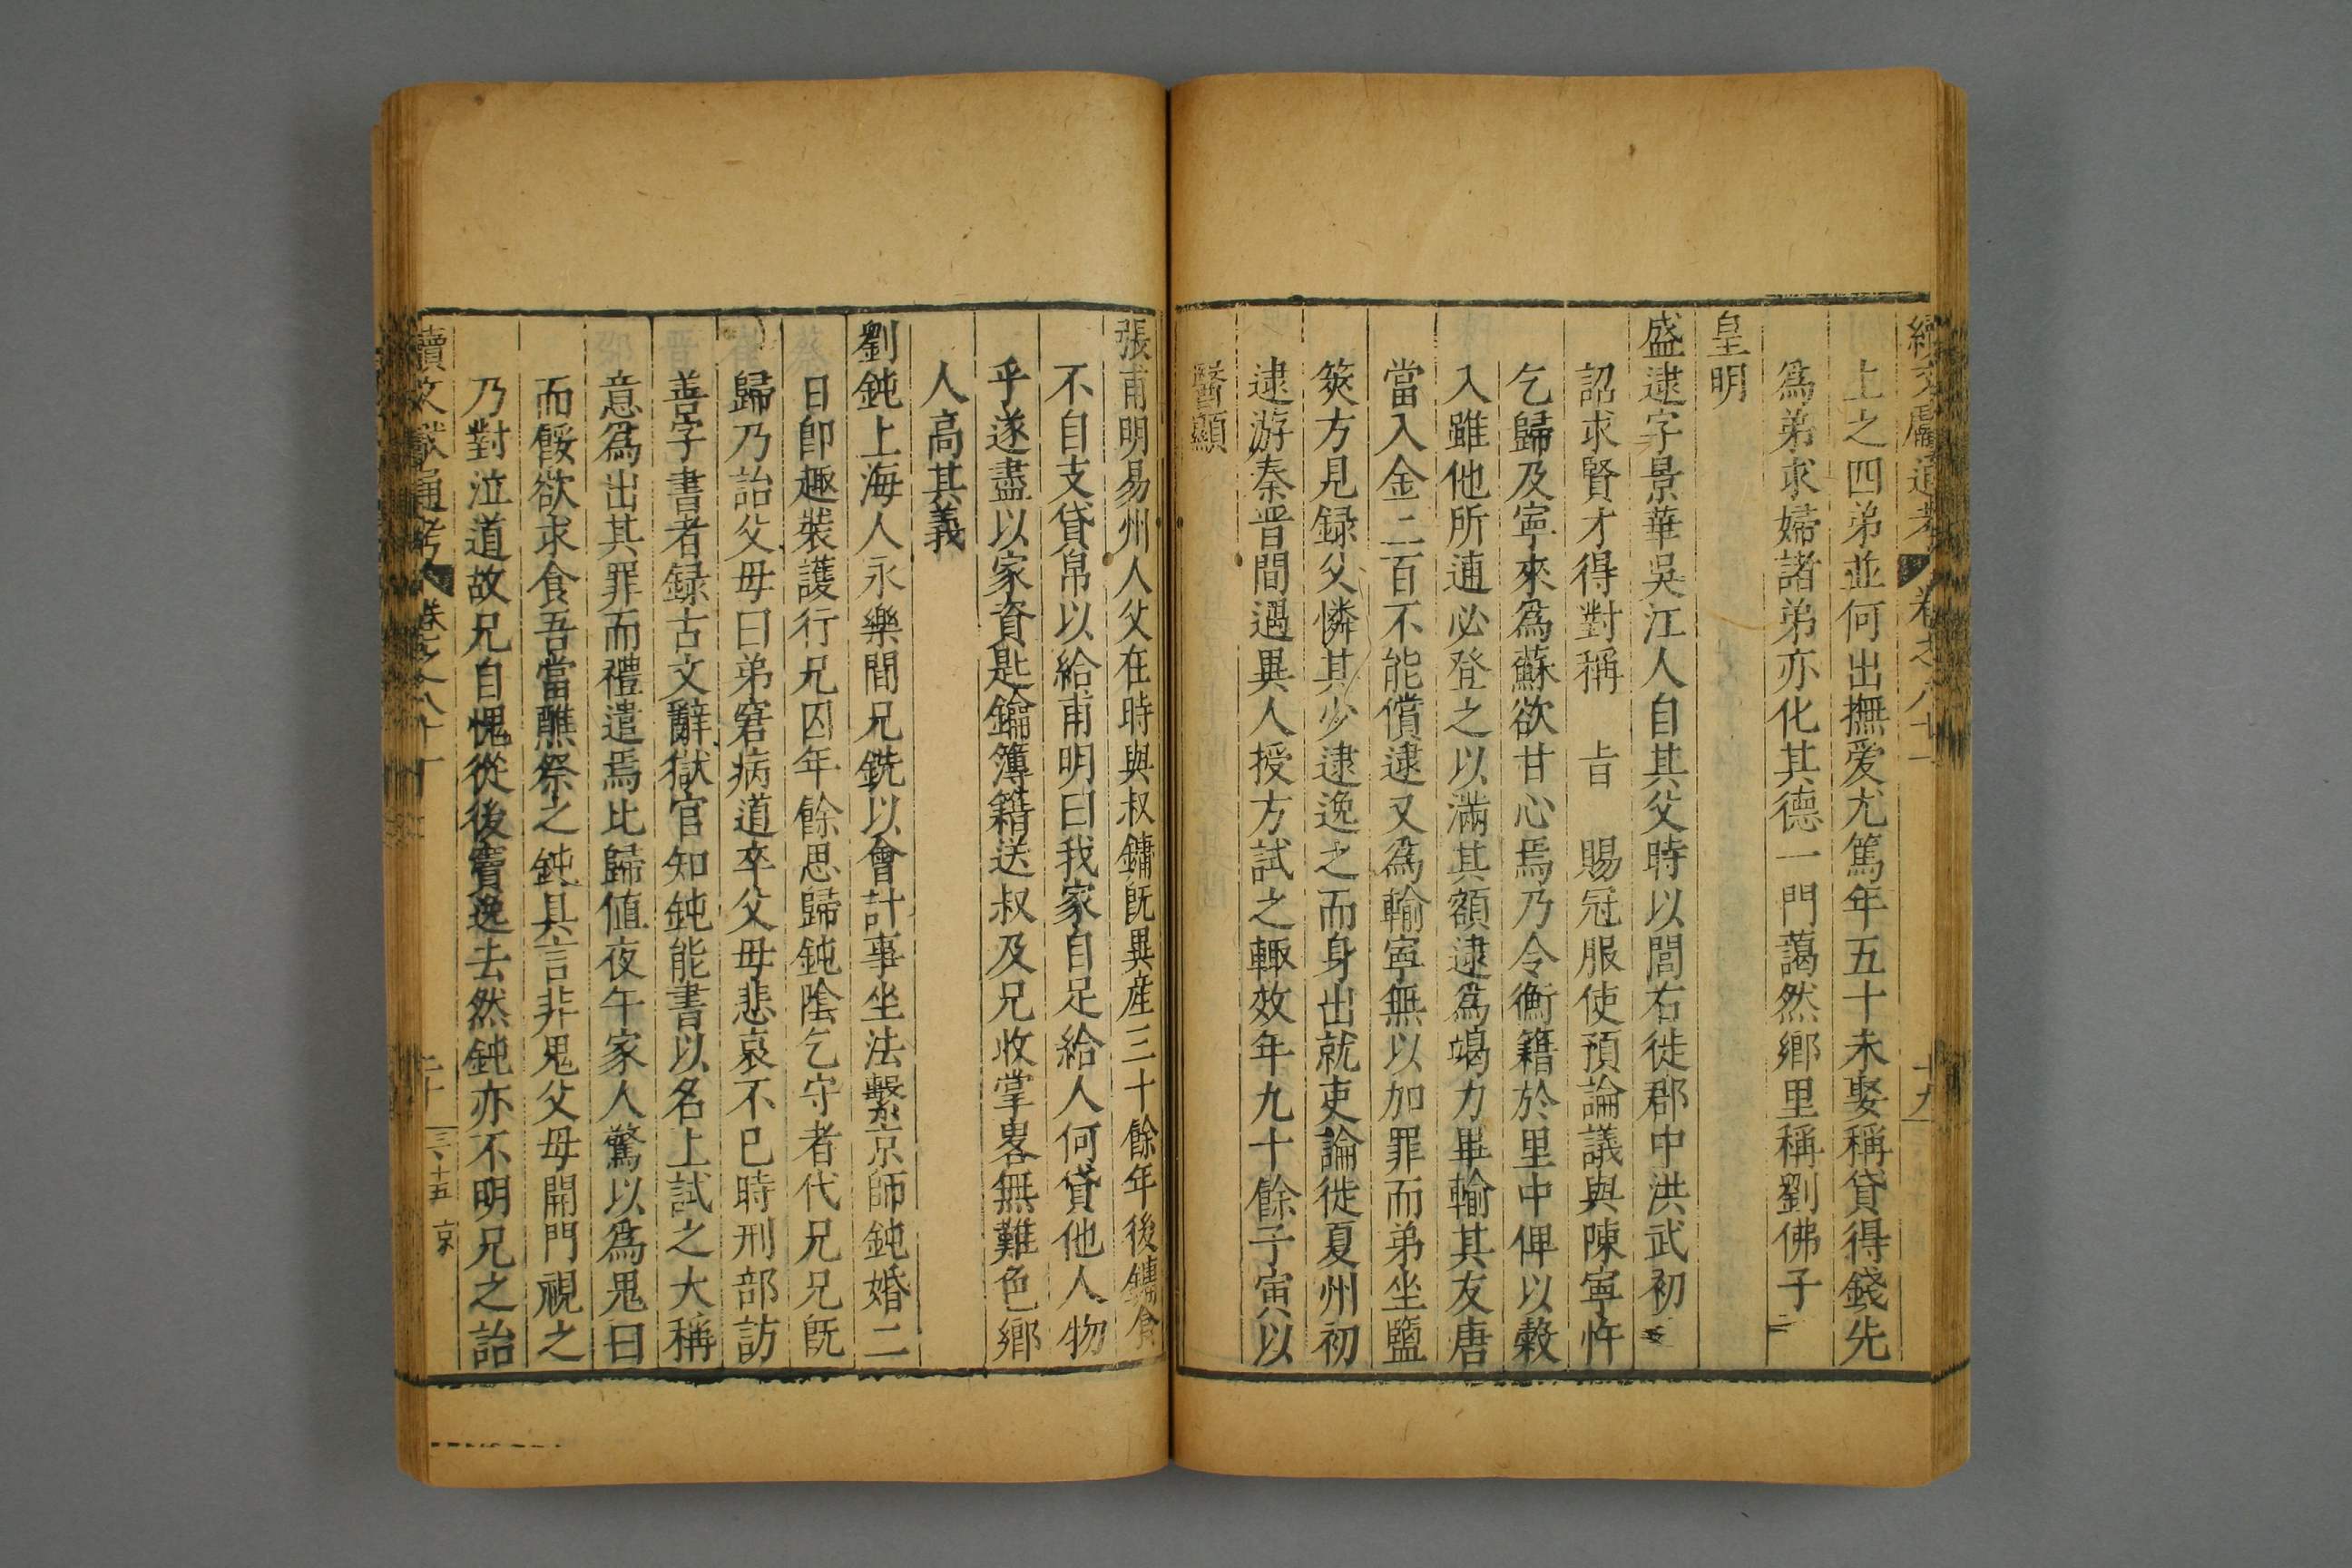 續文獻通考 卷之八十一 十九
上之四弟並何出撫爱尤篤年五十未娶稱貸得錢先
爲弟求婦諸弟亦化其德一門藹然鄉里稱劉佛子
皇明
盛逮字景華吳江人自其父時以閭右徙郡中洪武初
詔求賢才得對稱 㫖 賜冠服使預論議與陳寧忤
乞歸及寧來爲蘇欲甘心焉乃令衡籍於里中俾以穀
入雖他所逋必登之以滿其額逮爲竭力畢輸其友唐
當入金二百不能償逮又爲輸寧無以加罪而弟坐鹽
筴方見録父憐其少逮逸之而身出就吏論徙夏州初
逮游秦晋間遇異人授方試之輙效年九十餘子寅以
醫顯
張甫明易州人父在時與叔鏞旣異産三十餘年後鏞食
不自支貸帛以給甫明曰我家自足給人何貸他人物
乎遂盡以家資匙鑰簿籍送叔及兄收掌畧無難色鄉
人高其義
劉鈍上海人永樂間兄銑以會計事坐法繫京師鈍婚二
日卽趣裝護行兄囚年餘思歸鈍陰乞守者代兄兄旣
歸乃詒父毋曰弟窘病道卒父毋悲哀不已時刑部訪
善字書者録古文辭獄官知鈍能書以名上試之大稱
意爲出其罪而禮遣焉比歸值夜午家人驚以爲鬼曰
而餒欲求食吾當醮祭之鈍具言非鬼父毋開門視之
乃對泣道故兄自愧從後竇逸去然鈍亦不明兄之詒
續文獻通考 卷之八十一 二十 三十五 京